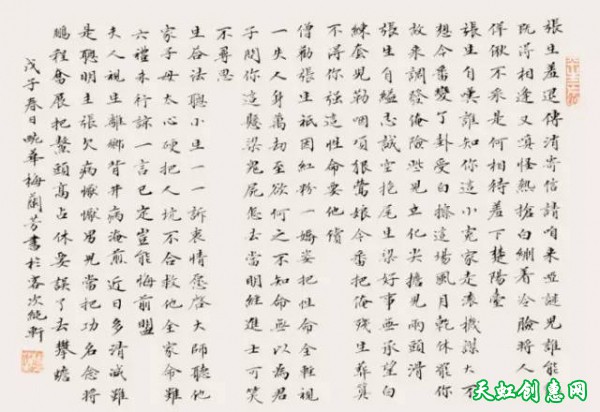 張生羞退傳消寄信請咱來並謎兒誰能
既得相逢又嗔怪熱搶白綳著冷臉將人
僝僽不來是何相待羞下楚陽臺
張生自嘆誰知你這小冤家走漆機謀大可
想今番變了卦受白擦這場風月乾休罷你
故來調發俺險些兒立化尖擔兒兩頭滑
張生自縊志誠空抱尾生梁好事無承望白
練套兒勒咽項狠鶯娘今番把俺殘生葬莫
不得你強這性命要他償
僧勸張生祇因紅粉一嬌姿把性命全輕視
一失人身萬劫至欲何之不知命無以為君
子問你這懸梁鬼屍怎去當明經進士可笑
不尋思
生啟法聰小生一一訴衷情愿啓大師聽他
家子母太心硬把人坑不合救他全家命難
六禮未行諒一言已定豈能悔前盟
夫人視生離鄉背井病淹煎近日多清減難
是聰明主張欠病懨懨男兒當把功名念將
鵬程奮展把鰲頭高占休要誤了去攀蟾
戊子春日畹華梅蘭芳書於客次純軒
天虹创意网